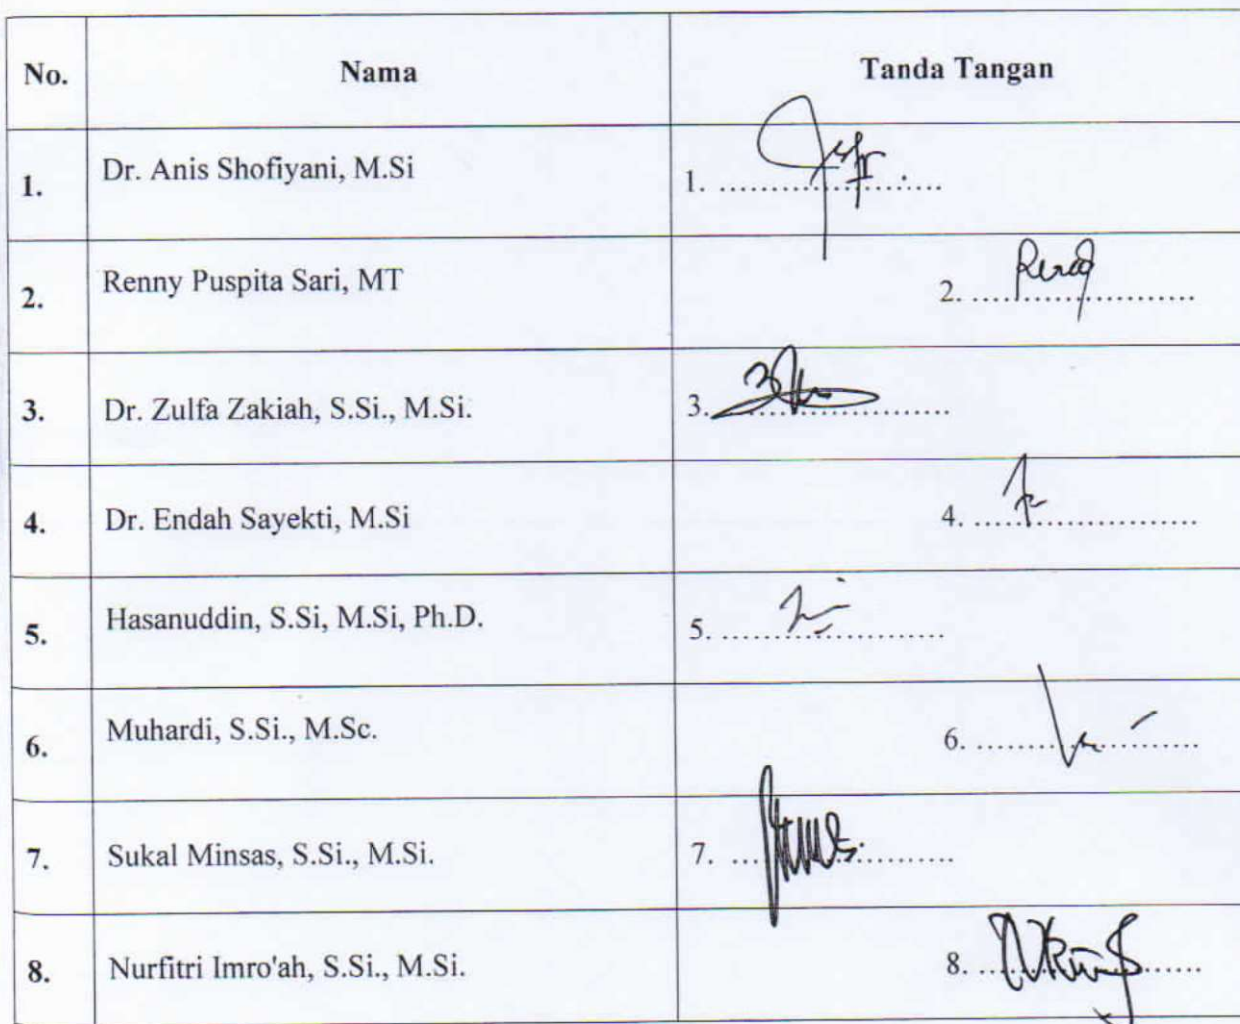 No. Nama Tanda Tangan
1. Dr. Anis Shofiyani, M.Si 1. ........................
2. Renny Puspita Sari, MT 2. ........................
3. Dr. Zulfa Zakiah, S.Si., M.Si. 3. ........................
4. Dr. Endah Sayekti, M.Si 4. ........................
5. Hasanuddin, S.Si, M.Si, Ph.D. 5. ........................
6. Muhardi, S.Si., M.Sc. 6. ........................
7. Sukal Minsas, S.Si., M.Si. 7. ........................
8. Nurfitri Imro'ah, S.Si., M.Si. 8. ........................